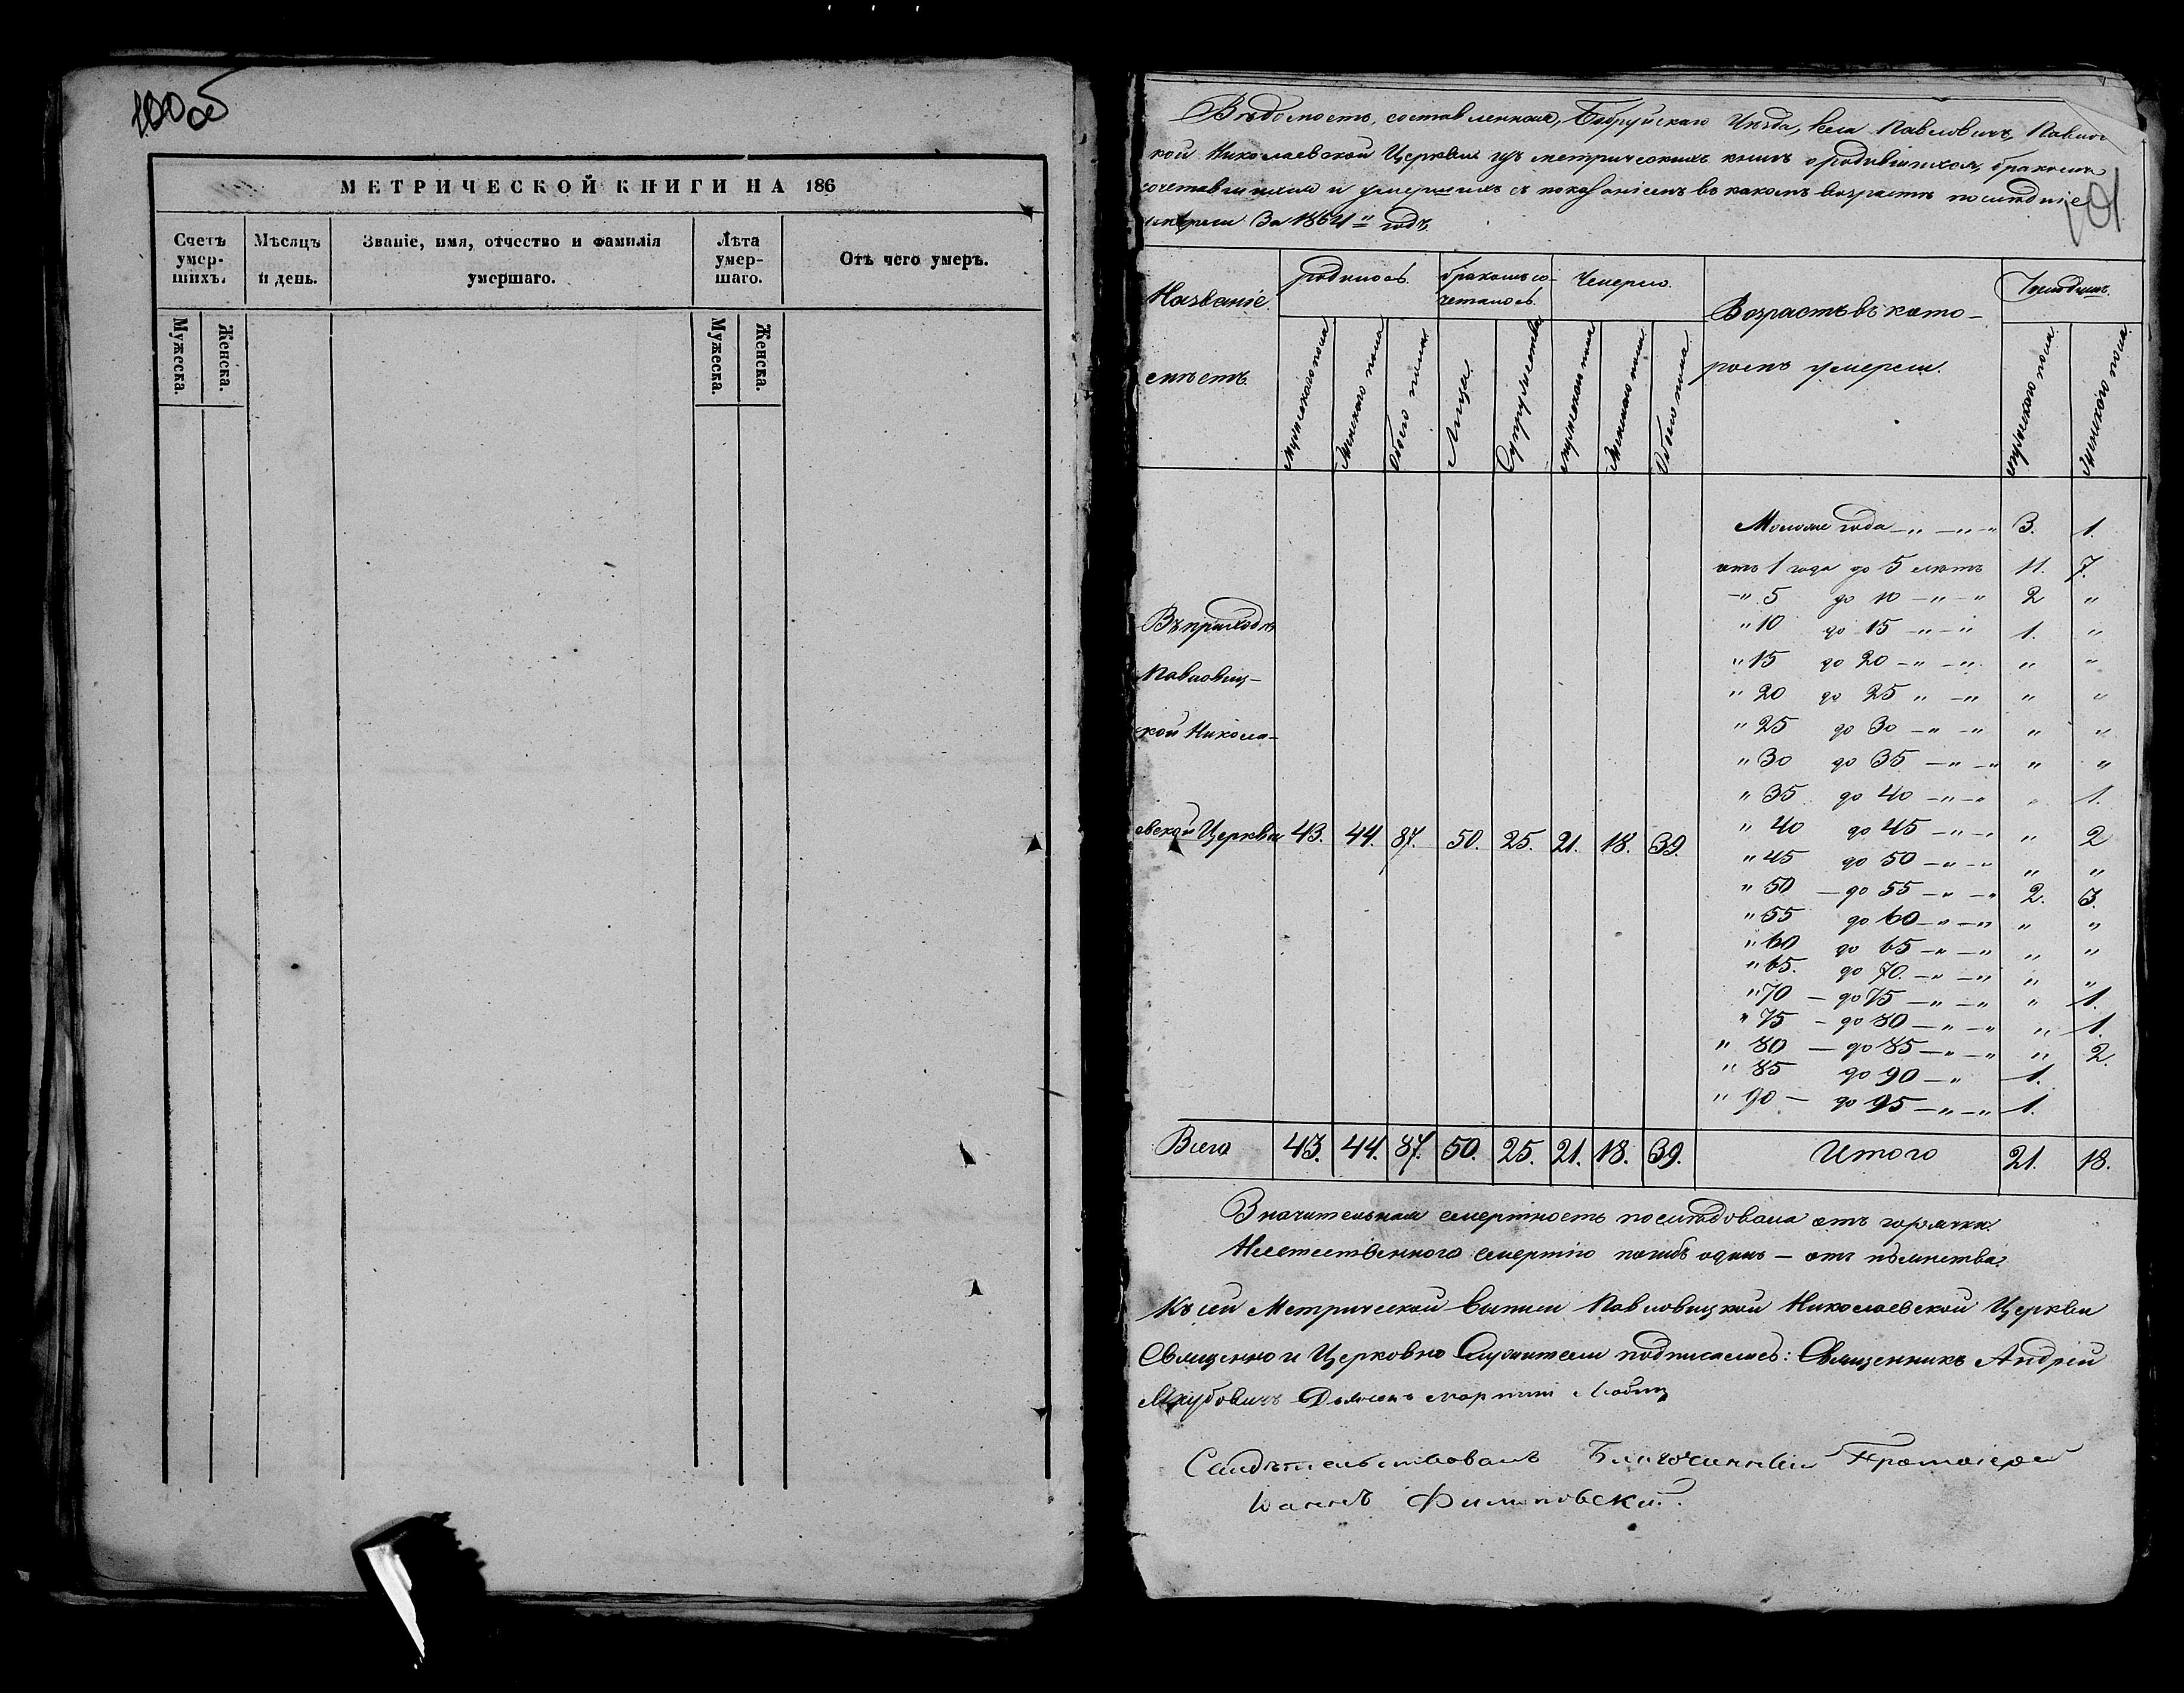 100 об
МЕТРИЧЕСКОЙ КНИГИ НА 186
Счетъ умер-шихъ.
Мѣсяцъ и день.
Званіе, имя, отчество и фамилія умершаго.
Лѣта умер-шаго.
Отъ чего умеръ.
Мужеска. Женска.
Мужеска. Женска.
101
Вѣдомость, составленная, Бобруйскаго Уѣзда, села Павловичъ, Павлов
кой Николаевской Церкви изъ метрическихъ книгъ о родившихся, бракомъ
сочетавшихся и умершихъ съ показаніемъ въ какомъ возрастѣ послѣдніе
умерли За 1864 годъ
Названіе мѣстъ
родилось
бракомъ со-четалось
Умерло
Возрастъ въ кото-ромъ умерли.
Мужескаго пола
Женскаго пола
Обоего пола
Лица
Супружества
Мужескаго пола
Женскаго пола
Обоего пола
мужескаго пола
Женскаго пола
Моложе года — " — " — " 3. 1.
отъ 1 года до 5 лѣтъ 11. 7.
— " 5 до 10 — " — " 2 "
" 10 до 15 — " — " 1. "
" 15 до 20 — " — " " "
" 20 до 25 " — " " "
" 25 до 30 — " — " " "
" 30 до 35 — " — " " "
" 35 до 40 — " — " " 1.
" 40 до 45 — " — " " 2
" 45 до 50 — " — " " "
" 50 — до 55 — " — " 2. 3.
" 55 до 60 — " — " " "
" 60 до 65 — " — " " "
" 65. до 70. — " — " " "
" 70 — до 75 — " — " " 1.
" 75 — до 80 — " — " " 1.
" 80 — до 85 — " — " " 2.
" 85 до 90 — " 1.
" 90 — до 95 — " — " 1.
Въ приходѣ
Павловиц-
кой Никола-
евской Церкви 43. 44. 87. 50. 25. 21. 18. 39.
Всего 43. 44. 87. 50. 25. 21. 18. 39. Итого 21. 18.
Значительная смертность послѣдовала отъ горячки.
Неестественного смертію погибъ одинъ — отъ пьянства.
Къ сей Метрической выписи Павловицкой Николаевской Церкви
Священно и Церковно Служители подписались: Священникъ Андрей
Дьяконъ
Свидѣтельствовалъ Благочинный Протоіерей
Іоаннъ